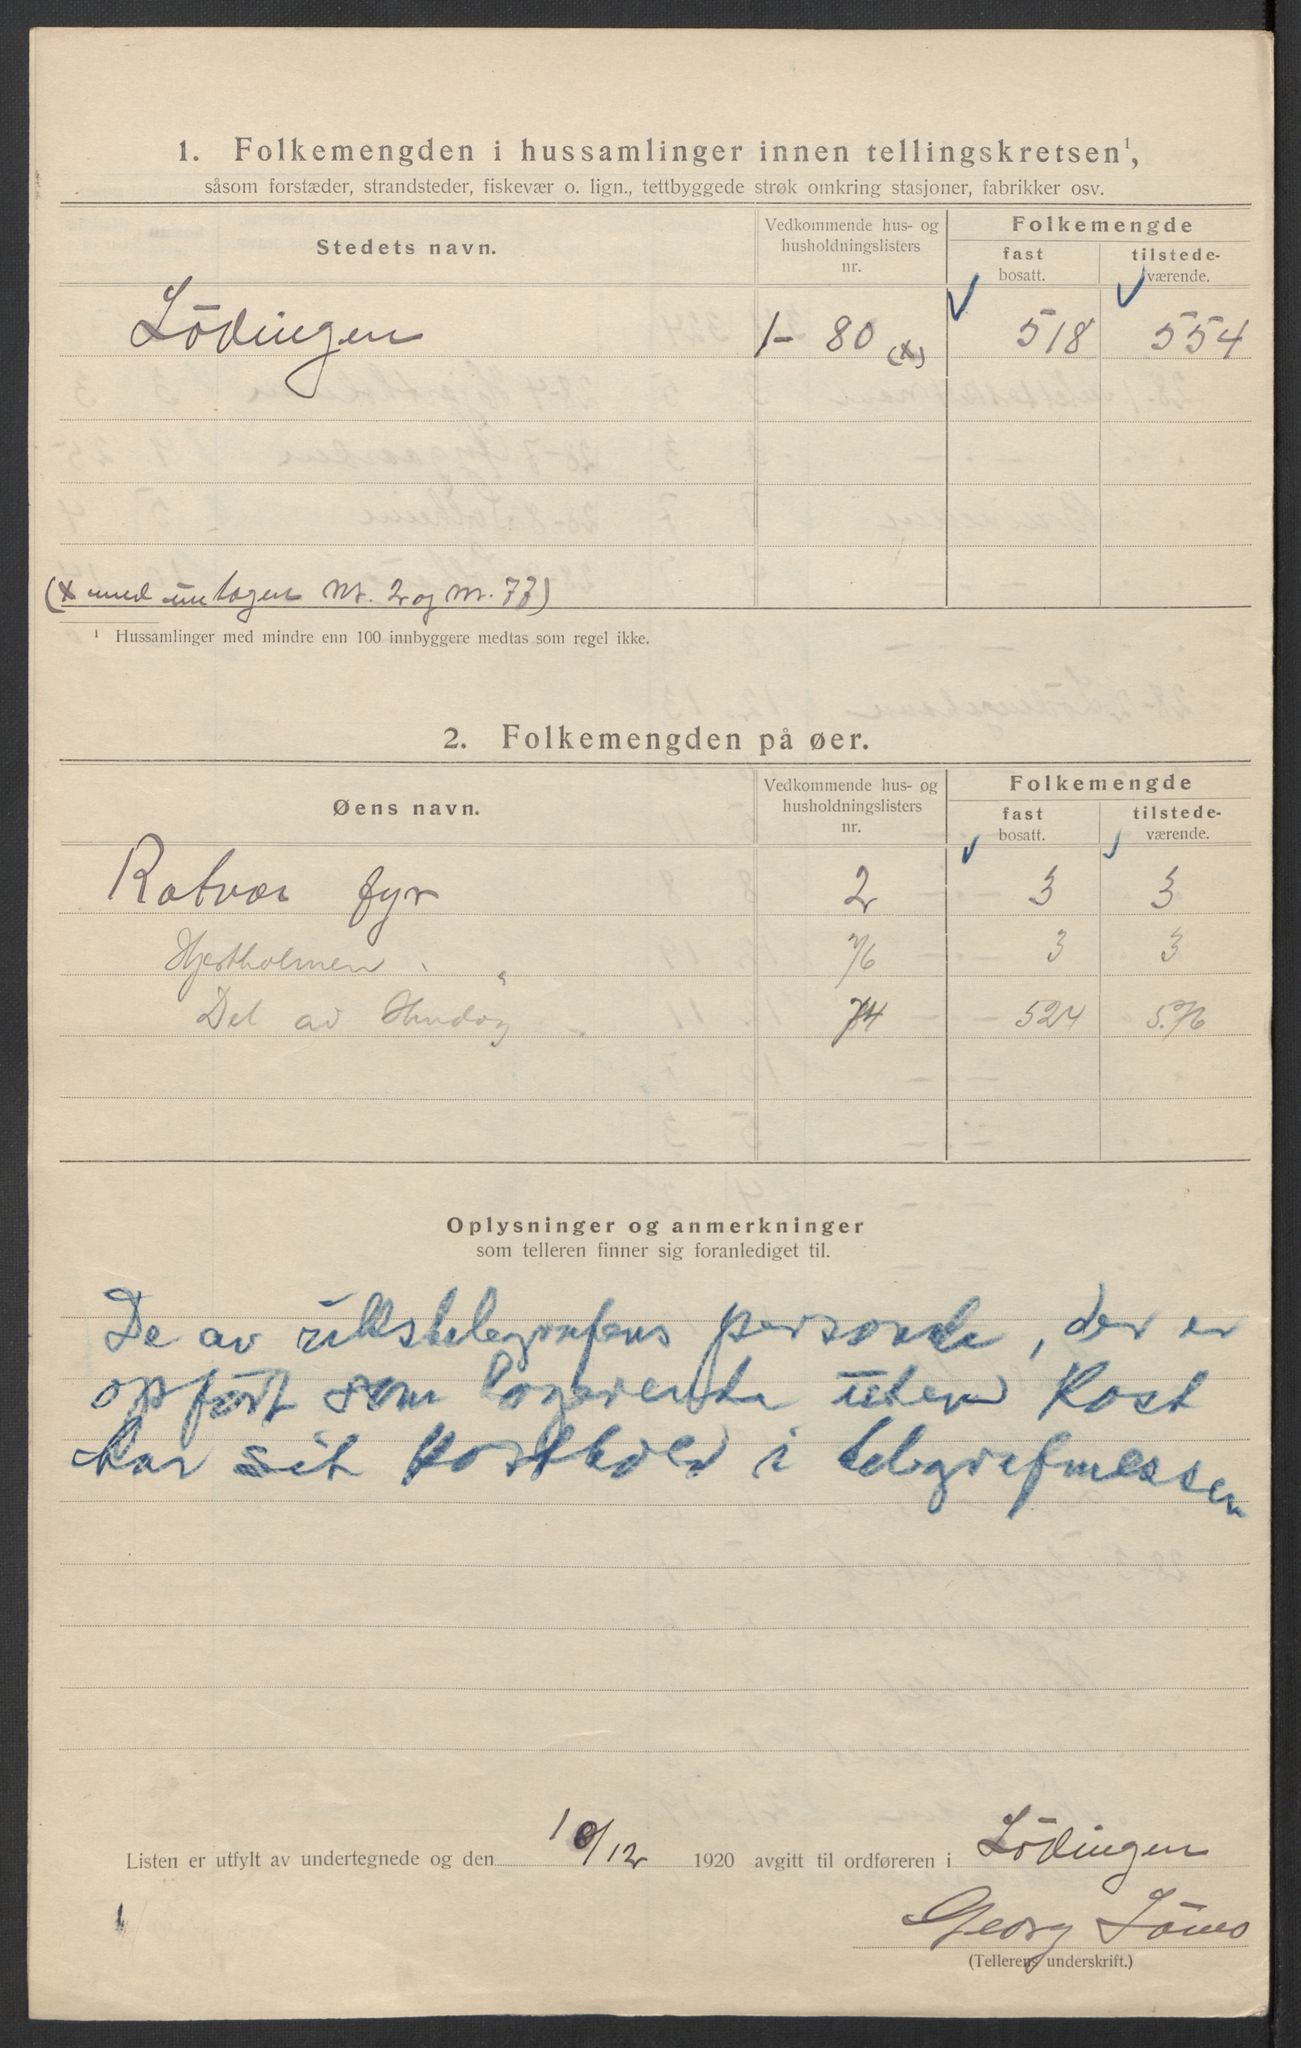 1. Folkemengden i hussamlinger innen tellingskretsen¹,
såsom forstæder, strandsteder, fiskevær o. lign., tettbyggede strøk omkring stasjoner, fabrikker osv.
Stedets navn. Vedkommende hus- og husholdningslisters nr. Folkemengde
fast bosatt. tilstedeværende.
Lödingen 1-80 (x) 518 554
(x med untagen Nr. 2 og Nr. 77)
¹ Hussamlinger med mindre enn 100 innbyggere medtas som regel ikke.
2. Folkemengden på øer.
Øens navn. Vedkommende hus- og husholdningslisters nr. Folkemengde
fast bosatt. tilstedeværende.
Rotvær fyr 2 3 3
Hjertholmen " 3 3
Del av Hindøy 74 524 576
Oplysninger og anmerkninger
som telleren finner sig foranlediget til.
De av rikstelegrafens personale, der er
opført som logerende uten Kost
har sit Kosthold i telegrafmessen
Listen er utfylt av undertegnede og den 10/12 1920 avgitt til ordføreren i Lödingen
Georg
(Tellerens underskrift.)